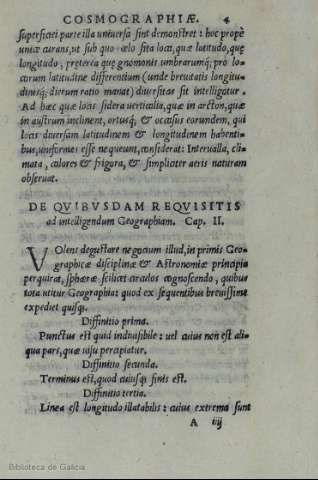 COSMOGRAPHIÆ. 4
superficiei parte illa uniuersa sint demonstret: hoc propè
uniuẽ curans, ut sub quo cœlo sita loca, quæ latitudo, quę
longitudo, pręterea quę gnomonis umbrarumq́; pro lo-
corum latitudine differentium (unde breuitatis longitu-
dinisq́; dierum ratio manat) diuersitas sit intelligatur.
Ad hæc quæ locis sidera uerticalia, quæ in arcton, quæ
in austrum inclinent, ortusq́; & occasus eorundem, qui
locis diuersam latitudinem & longitudinem habenti-
bus, uniformes esse nequeunt, considerat: Interualla, cli-
mata, calores & frigora, & simpliciter aeris naturam
obseruat.
DE QVIBVSDAM REQVISITIS
ad intelligendum Geographiam. Cap. II.
VOlens degustare negocium illud, in primis Geo-
graphicæ disciplinæ & Astronomiæ principia
perquirat, sphæræ scilicet circulos cognoscendo, quibus
tota utitur Geographia: quod ex sequentibus breuissime
expediet quisq;
Diffinitio prima.
Punctus est quid indiuisibile: uel cuius non est ali-
qua pars, quæ uisu percipiatur.
Diffinitio secunda.
Terminus est, quod cuiusq; finis est.
Diffinitio tertia.
Linea est longitudo illatabilis: cuius extrema sunt
A iij
Biblioteca de Galicia